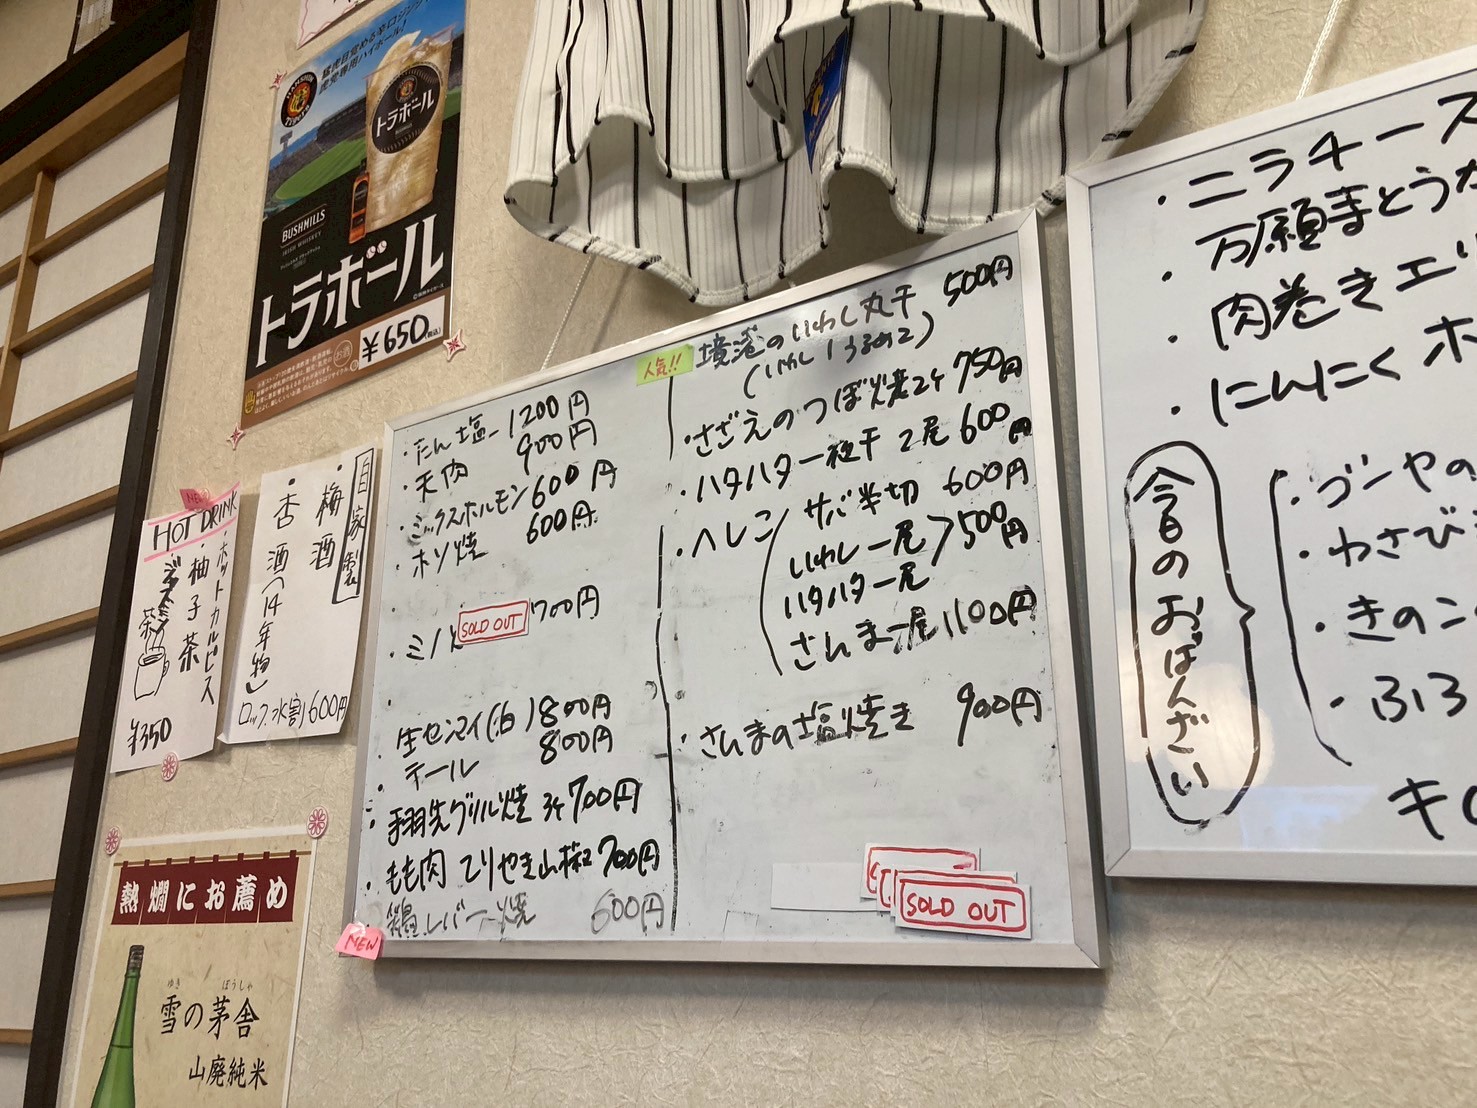 猛虎目覚める辛口ジンジャー
虎党専用ハイボール！
Tigers
トラボール
BUSHMILLS
BUSHMILLS
IRISH WHISKEY
トラボール
¥650(税込)
お酒
HOT DRINK
・ホットカルピス
・柚子茶
茶
¥350
自家製
・梅酒
・杏酒(14年物)
ロック、水割600円
熱燗にお薦め
ゆき ぼうしゃ
雪の茅舎
山廃純米
・たん塩 1200円
・天肉 900円
・ミックスホルモン 600円
・ホソ焼 600円
・ミノ SOLD OUT 700円
・生センマイ(白) 800円
・テール 800円
・手羽先グリル焼 3ケ 700円
・もも肉 てりやき山椒 700円
NEW
鶏レバー焼 600円
人気!!
境港のいわし丸干 500円
(いわし1うるめ2)
・さざえのつぼ焼2ケ 750円
・ハタハタ一夜干 2尾 600円
・ヘレンコ
サバ半切 600円
いわし一尾
ハタハタ一尾
500円
さんま一尾 1100円
・さんまの塩焼き 900円
SOLD OUT
・ニラチーズ
・万願寺とうが
・肉巻きエリ
・にんにくホ
今日のおばんざい
・ゴーヤの
・わさび
・きのこ
・ふろ
キ